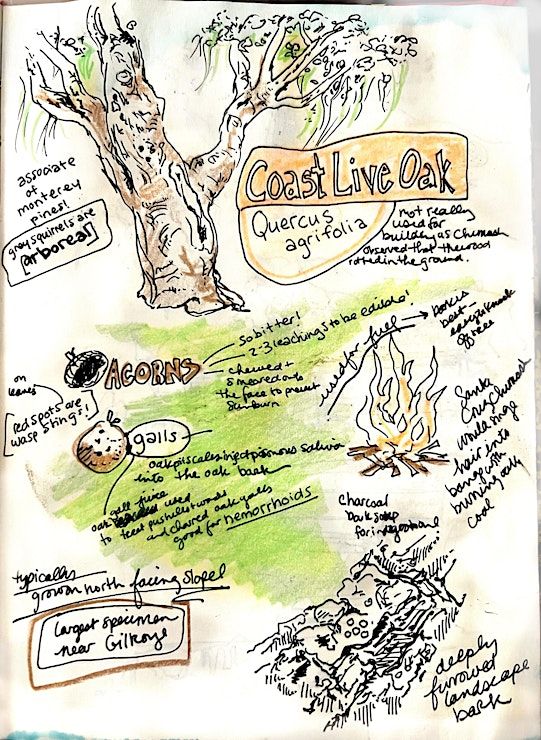 Coast Live Oak
Quercus
agrifolia
associate
of
monterey
pines!
grey squirrels are
[arboreal]
not really
used for
building as Chumash
observed that the wood
rotted in the ground.
ACORNS
so bitter!
2-3 leachings to be edible!
chewed +
smeared onto
the face to prevent
sunburn
used for fuel
bark is
best
easy to knock
off tree
on
leaves
red spots are
wasp stings!
galls
oak pit scales inject poisonous saliva
into the oak bark
oak gall juice
used
to treat pustulest wounds
and charred oak galls
good for hemorrhoids
Santa
Cruz Chumash
would singe
hair into
bangs with
burning oak
coal
charcoal
bark soap
for
typically
grow on north facing slopes
largest specimen
near Gilroy!
deeply
furrowed
landscape
bark